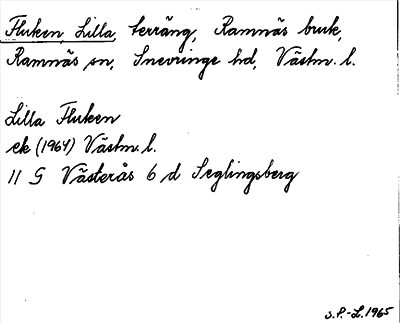 Fluken Lilla, terräng, Ramnäs bruk,
Ramnäs sn, Snevringe hd, Västm. l.
Lilla Fluken
ek (1964) Västm. l.
11 G Västerås 6 d Seglingsberg
S.P.-L. 1965